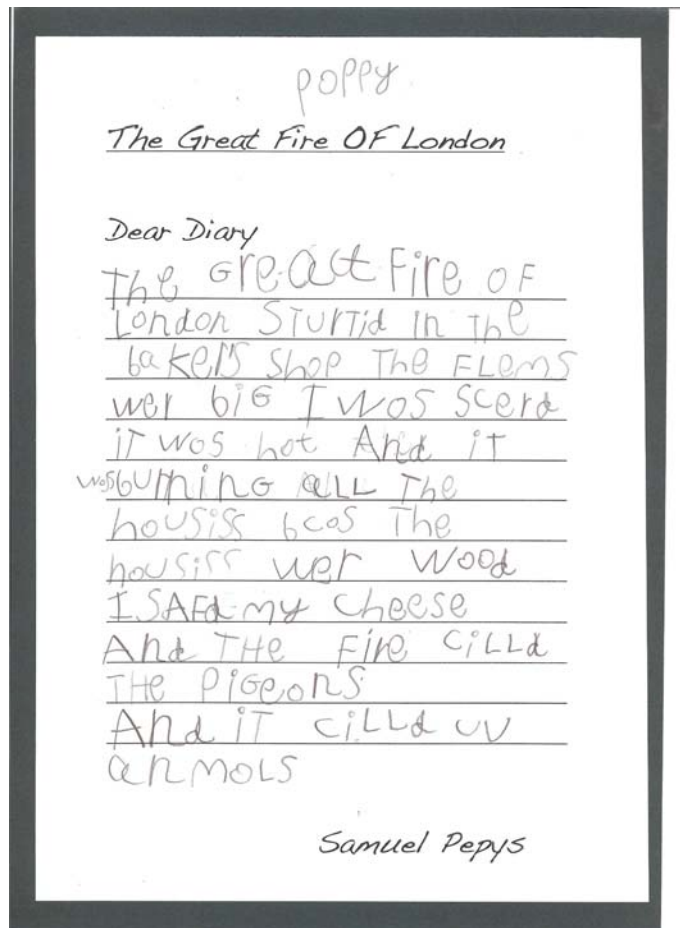 poppy
The Great Fire OF London
Dear Diary
The Great Fire OF
London Sturtid in The
bakers Shop The FLems
wer biG I wos Scerd
iT wos hot And iT
wos burning aLL The
housiss bcos The
housiss wer wood
I SAFd my cheese
And THe Fire ciLLd
THe PiGeons
And iT ciLLd uv
anmoLs
Samuel Pepys